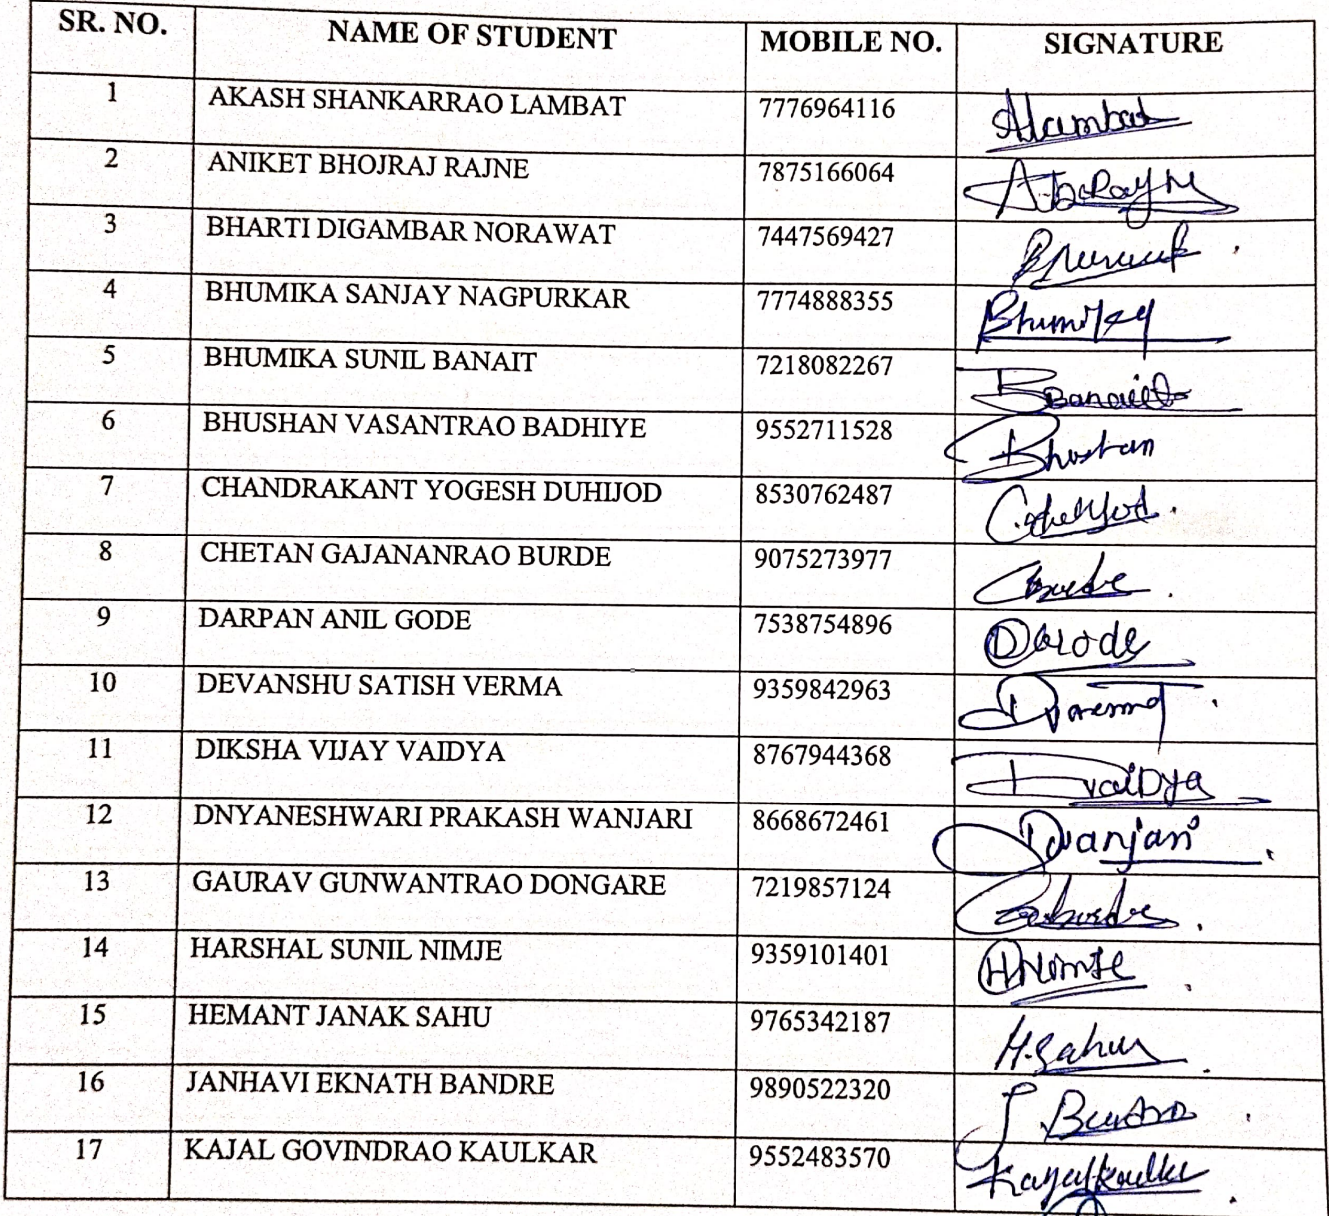 SR. NO. NAME OF STUDENT MOBILE NO. SIGNATURE
1 AKASH SHANKARRAO LAMBAT 7776964116 Alambat
2 ANIKET BHOJRAJ RAJNE 7875166064
3 BHARTI DIGAMBAR NORAWAT 7447569427
4 BHUMIKA SANJAY NAGPURKAR 7774888355
5 BHUMIKA SUNIL BANAIT 7218082267
6 BHUSHAN VASANTRAO BADHIYE 9552711528
7 CHANDRAKANT YOGESH DUHIJOD 8530762487
8 CHETAN GAJANANRAO BURDE 9075273977
9 DARPAN ANIL GODE 7538754896
10 DEVANSHU SATISH VERMA 9359842963
11 DIKSHA VIJAY VAIDYA 8767944368 DvaiDya
12 DNYANESHWARI PRAKASH WANJARI 8668672461
13 GAURAV GUNWANTRAO DONGARE 7219857124
14 HARSHAL SUNIL NIMJE 9359101401
15 HEMANT JANAK SAHU 9765342187 H.Sahu
16 JANHAVI EKNATH BANDRE 9890522320
17 KAJAL GOVINDRAO KAULKAR 9552483570